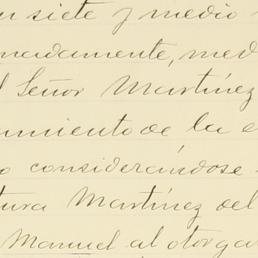 siete y medio
nadamente, med
l Señor Martínez
miento de la e
o considerándose
tura Martínez del
Manuel al otorga